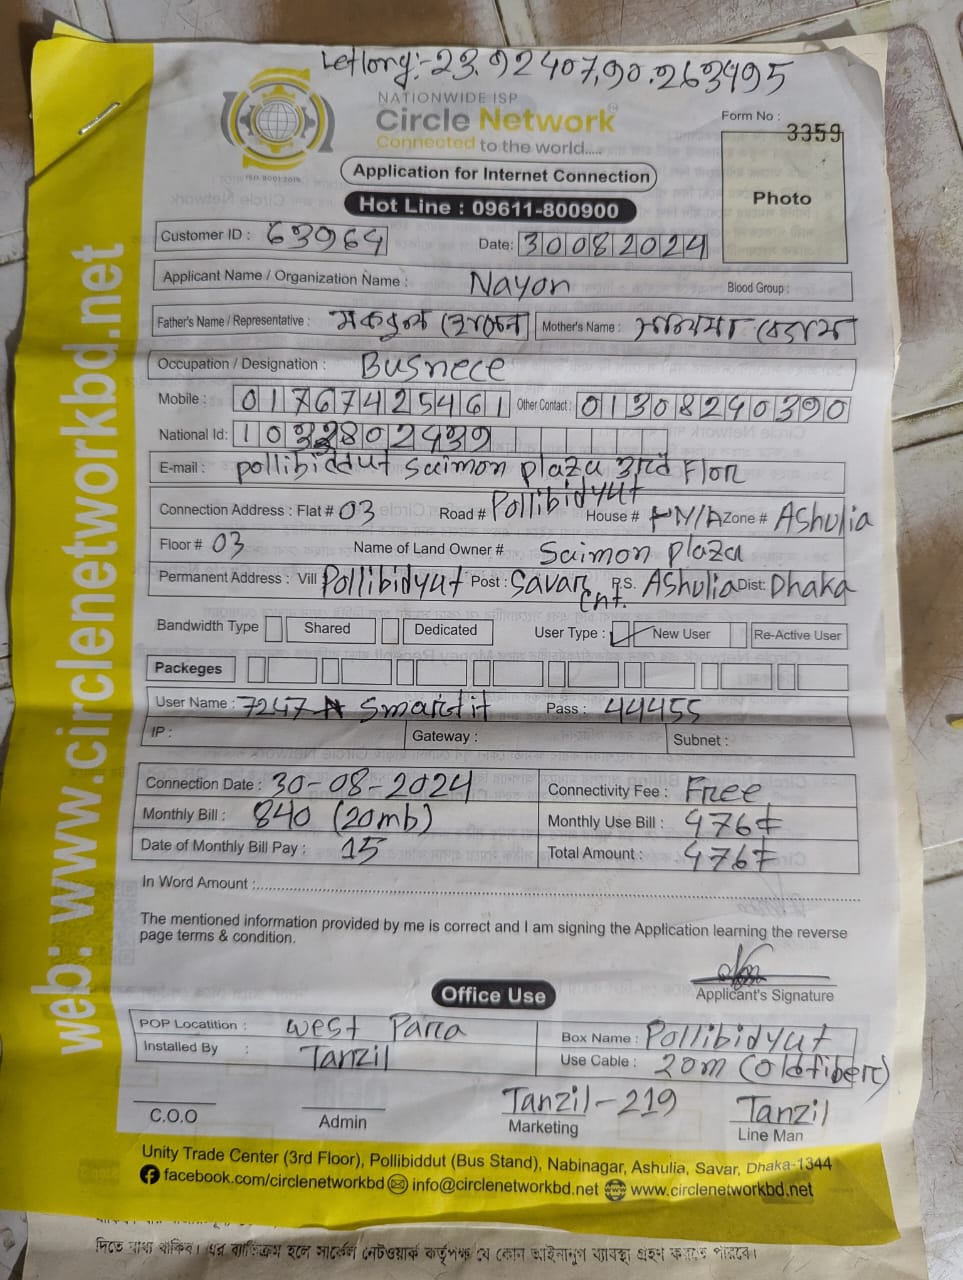 Letlong:-23.92407,90.263495
NATIONWIDE ISP
Circle Network
Connected to the world.....
ISO 9001:2015
Form No : 3359
Photo
Application for Internet Connection
Hot Line : 09611-800900
Customer ID : 63964 Date: 30082024
Applicant Name / Organization Name : Nayon Blood Group :
Father's Name / Representative : Mother's Name :
Occupation / Designation : Busnece
Mobile : 01767425461 Other Contact : 01308240390
National Id: 1032802439
E-mail : pollibiddut saimon plaza 3rd Flor
Connection Address : Flat # 03 Road # Pollibidyut House # N/A Zone # Ashulia
Floor # 03 Name of Land Owner # Saimon plaza
Permanent Address : Vill Pollibidyut Post : Savar Cnt. P.S. Ashulia Dist: Dhaka
Bandwidth Type Shared Dedicated User Type : New User Re-Active User
Packeges
User Name : 7247 Smartit Pass : 44455
IP : Gateway : Subnet :
Connection Date : 30-08-2024 Connectivity Fee : Free
Monthly Bill : 840 (20mb) Monthly Use Bill : 476
Date of Monthly Bill Pay : 15 Total Amount : 476
In Word Amount :
The mentioned information provided by me is correct and I am signing the Application learning the reverse
page terms & condition.
Applicant's Signature
Office Use
POP Locatition : West Parra Box Name : Pollibidyut
Installed By : Tanzil Use Cable : 20m (Oldfiber)
C.O.O Admin Tanzil-219 Marketing Tanzil Line Man
Unity Trade Center (3rd Floor), Pollibiddut (Bus Stand), Nabinagar, Ashulia, Savar, Dhaka-1344
facebook.com/circlenetworkbd info@circlenetworkbd.net www.circlenetworkbd.net
web: www.circlenetworkbd.net
দিতে বাধ্য থাকিব। এর ব্যতিক্রম হলে সার্কেল নেটওয়ার্ক কর্তৃপক্ষ যে কোন আইনানুগ ব্যবস্থা গ্রহণ করতে পারবে।